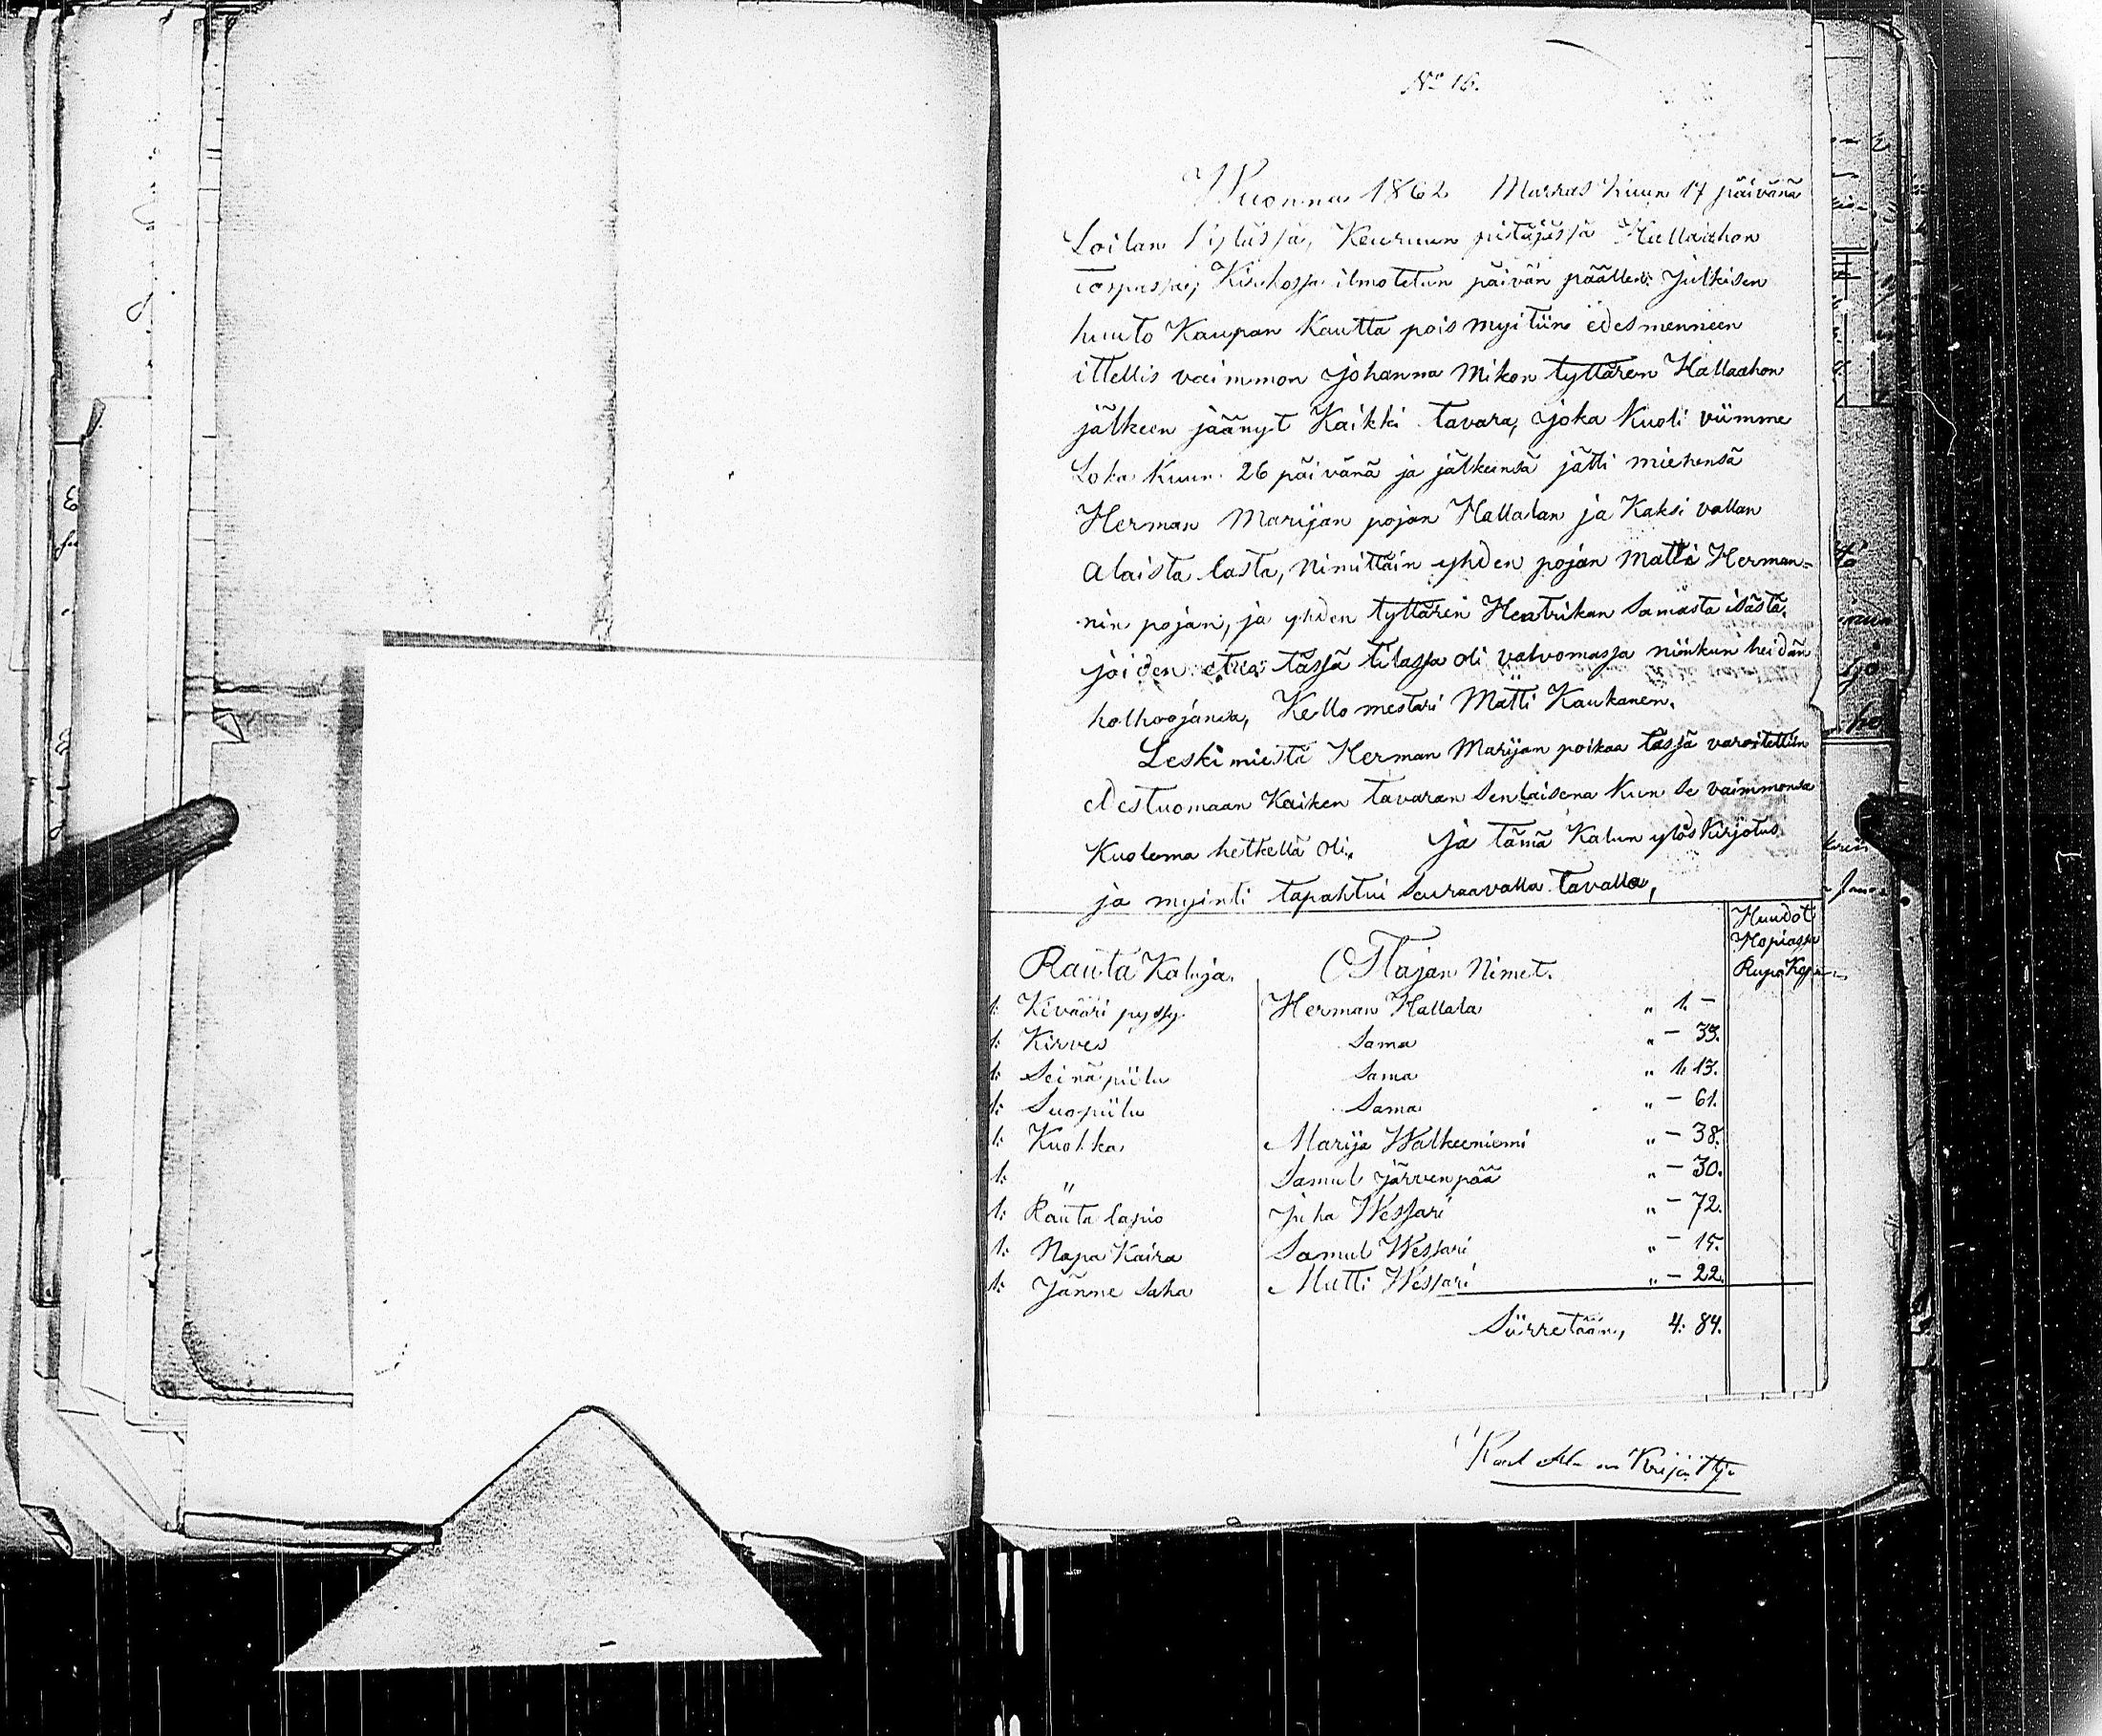 No 16.
Wuonna 1862 Marras Kuun 17 päivänä
Loilan kylässä, Keuruun pitäjässä Hallaahon
Torpassa, Kirkossa ilmotetun päivän päälle: Julkisen
huuto Kaupan Kautta pois myitiin edesmenneen
ittellis vaimmon Johanna Mikon tyttären Hallaahon
jälkeen jäänyt Kaikki tavara, joka Kuoli viimme
Loka Kuun 26 päivänä ja jälkeensä jätti miehensä
Herman Marijan pojan Hallalan ja Kaksi vallan
alaista lasta, Nimittäin yhden pojan Matti Herman=
nin pojan, ja yhden tyttären Heatrikan Samasta isästä,
joiden etua tässä tilassa oli valvomassa niinkun heidän
holhoojansa, Kello mestari Matti Kaukanen.
Leski miestä Herman Marijan poikaa tässä varoitettiin
edestuomaan Kaiken tavaran Senlaisena Kun Se vaimmonsa
Kuolema hetkellä oli. Ja tämä Kalun ylöskirjotus
ja myinti tapahtui Seuraavalla tavalla,
Rauta Kaluja. Ostajan Nimet. Huudot Hopiassa Rup. Kop.
1: Kivääri pyssy. Herman Hallala " 1. –
1: Kirves Sama " – 33.
1: Seinä piilu Sama " 1. 13.
1: Suopiilu Sama " – 61.
1: Kuokka Marija Walkeeniemi " – 38.
1: " Samul Järvenpää " – 30.
1: Rauta lapio Juha Wessari " – 72.
1: Napa Kaira Samul Wessari " – 15.
1: Jänne Saha Matti Wessari " – 22.
Siirretään, 4. 84.